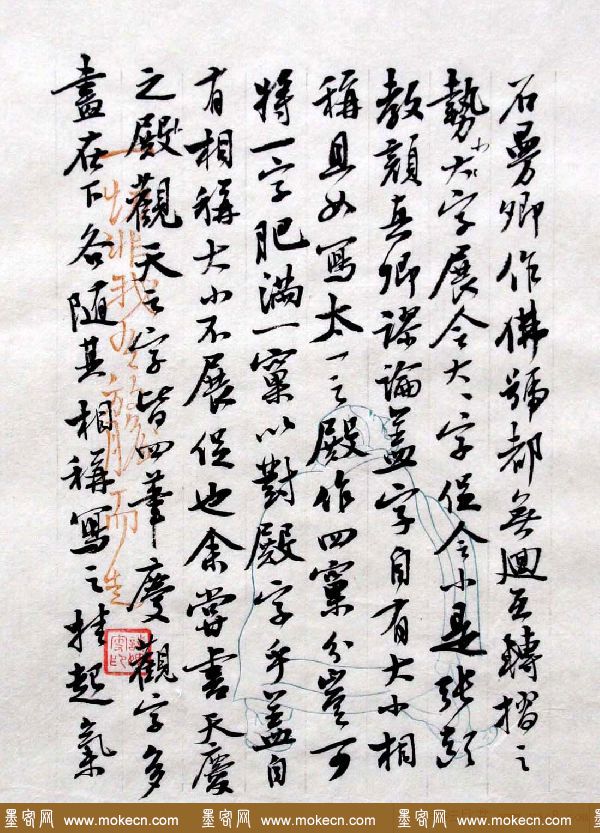 石曼卿作佛號都無迴互轉摺之
勢小大字展令大丶字促令小是張顛
教顏真卿謬論蓋字自有大小相
稱且如寫太一之殿作四窠分豈可
將一字肥滿一窠以對殿字乎蓋自
有相稱大小不展促也余嘗書天慶
之殿觀天之字皆四筆慶觀字多
畫在下各隨其相稱寫之挂起氣
墨客网 www.mokecn.com 墨客网 www.mokecn.com 墨客网 www.mokecn.com